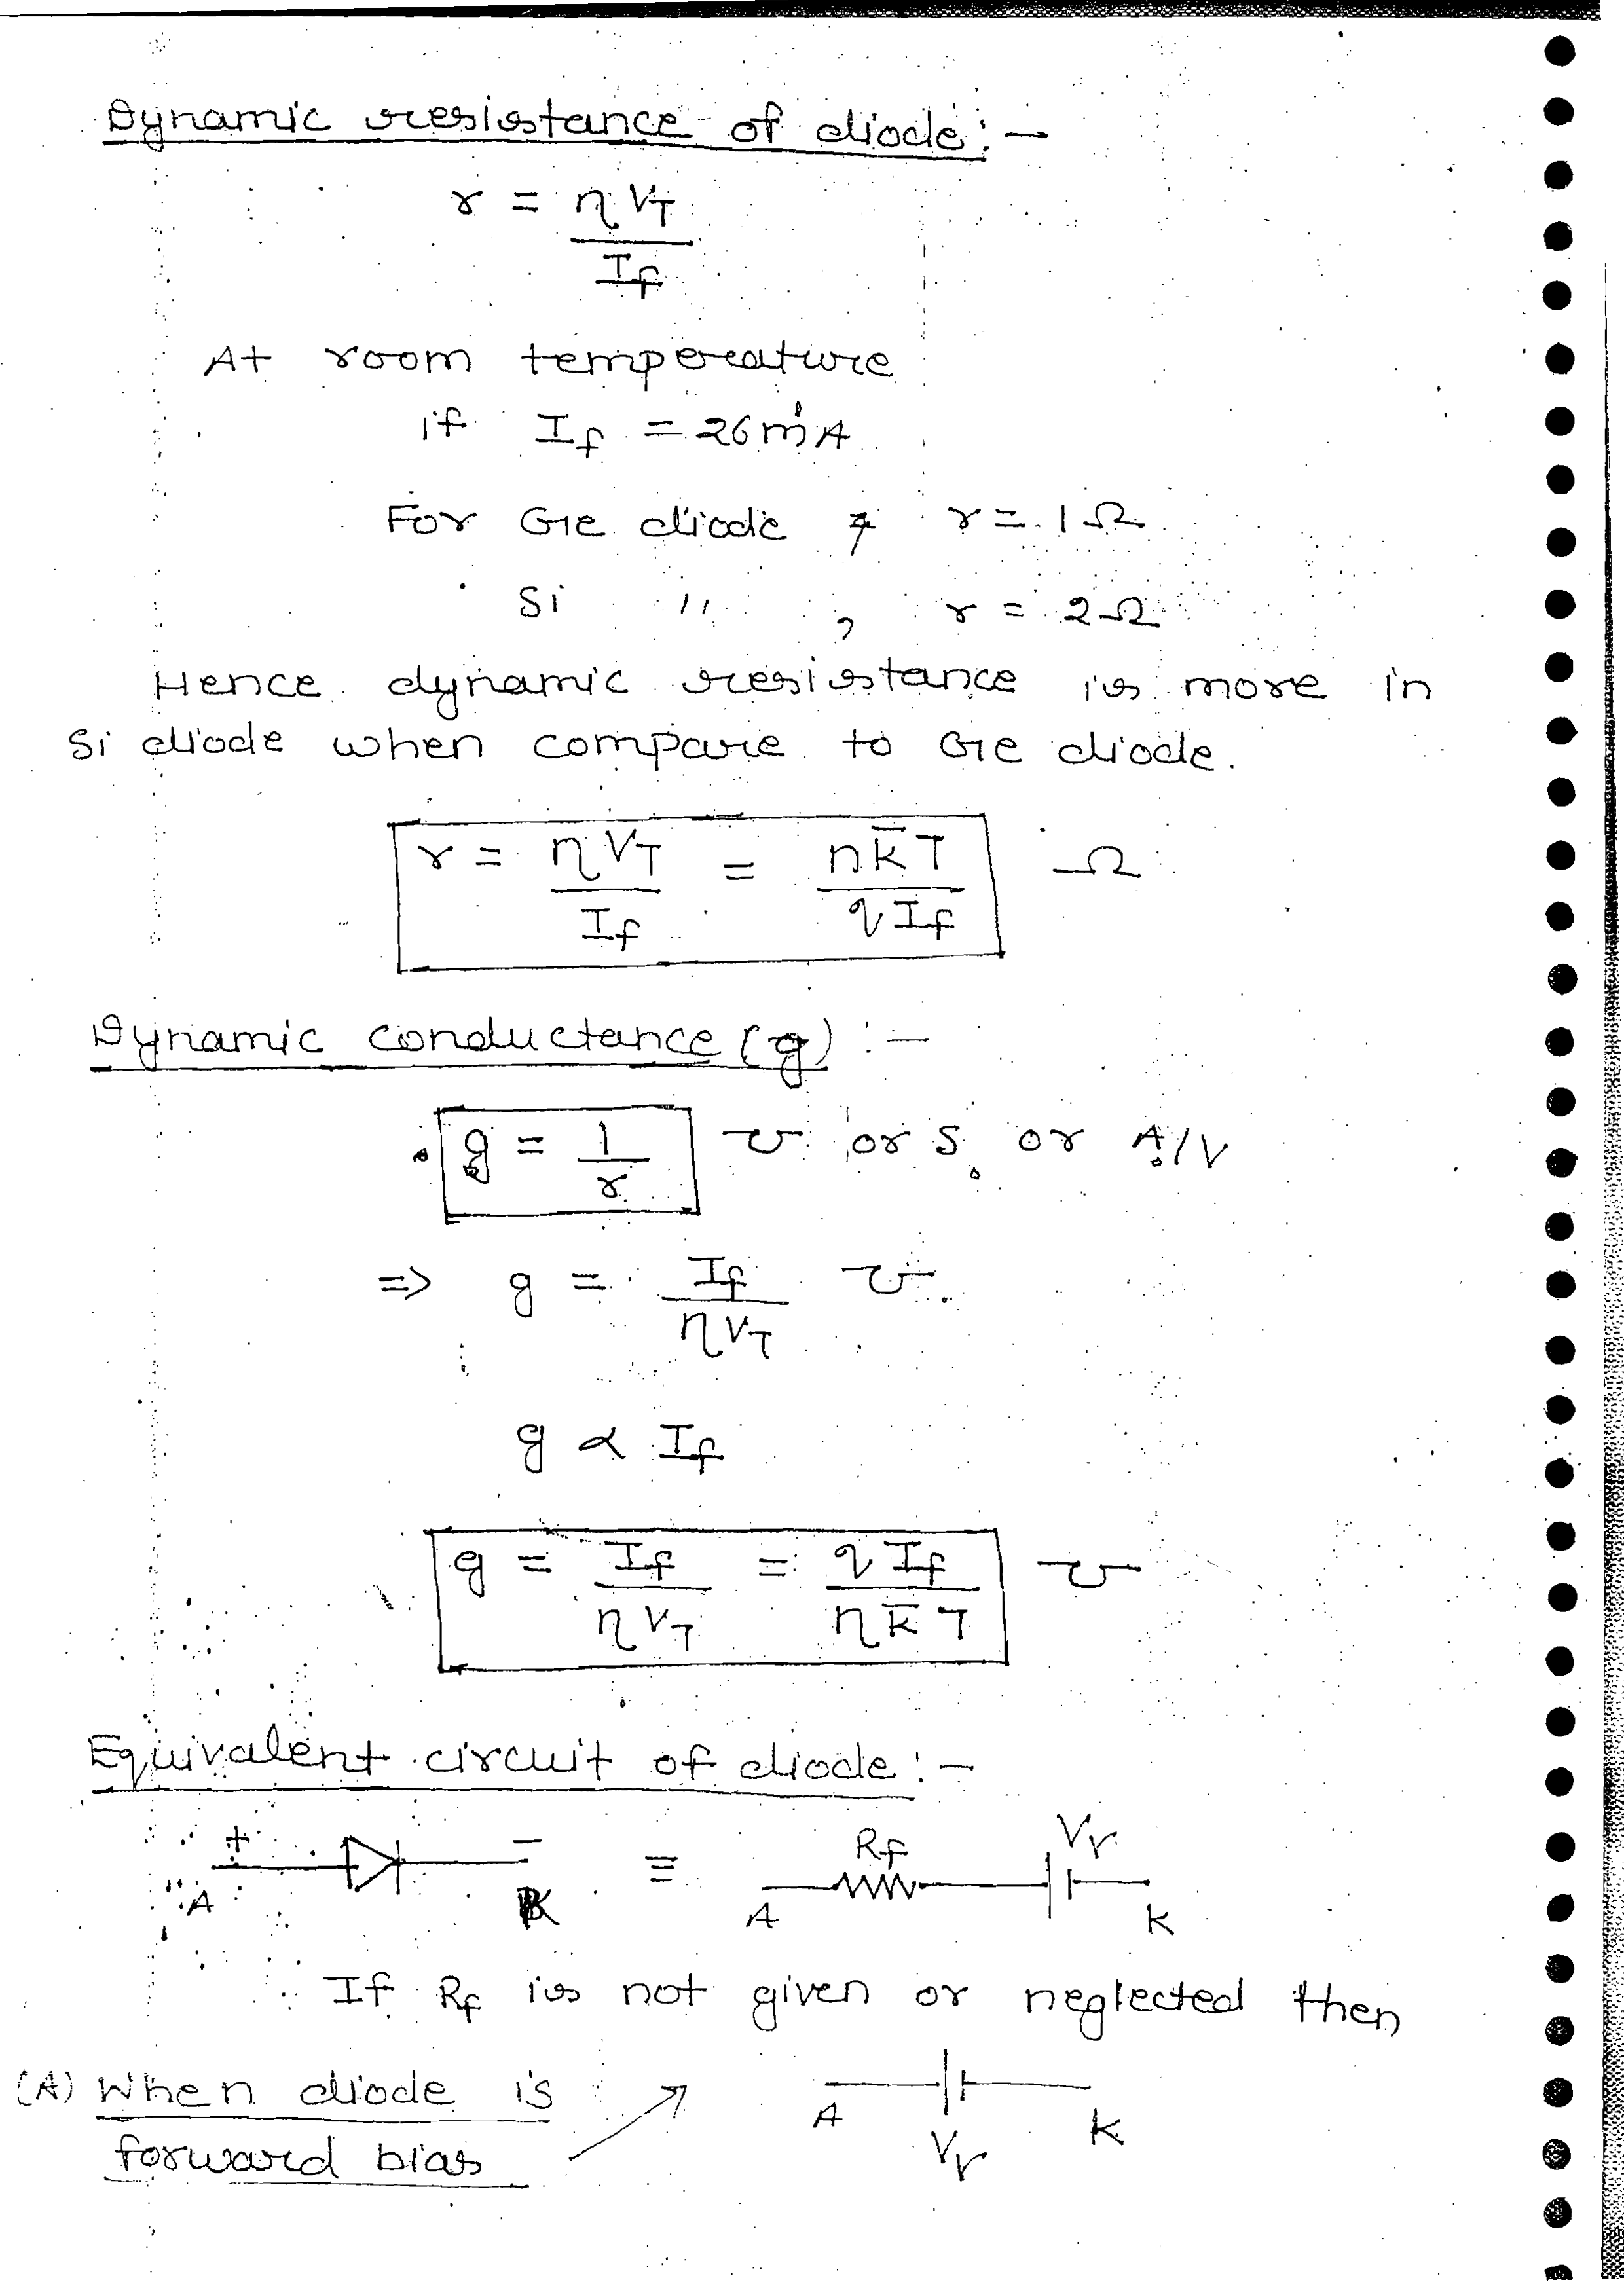 Dynamic resistance of diode :-
r = ηV_T / I_f
At room temperature
if I_f = 26mA
For Ge diode , r = 1Ω
Si " , r = 2Ω
Hence dynamic resistance is more in
Si diode when compare to Ge diode.
r = ηV_T / I_f = ηk̅T / qI_f Ω
Dynamic conductance (g) :-
g = 1 / r ℧ or S or A/V
=> g = I_f / ηV_T ℧.
g ∝ I_f
g = I_f / ηV_T = qI_f / ηk̅T ℧
Equivalent circuit of diode :-
+ − ≡ R_f V_γ
A K A K
If R_f is not given or neglected then
(A) When diode is A K
forward bias V_γ